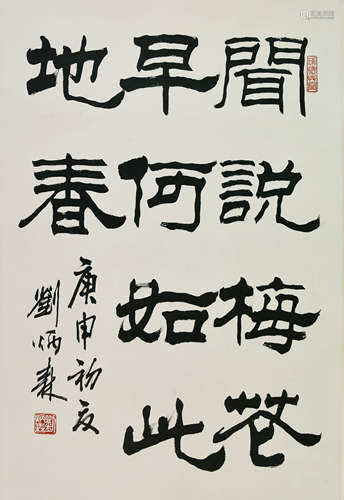 聞說梅花
早何如此
地春
庚申初夏
劉炳森